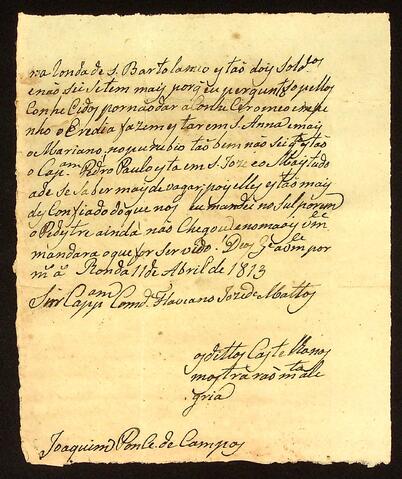 na Ronda de S. Bartolameo estão dois soldos
enão sei se tem mais porq̃ eu pergunto opellos
Conhecidos por não dar a Conhecer o meo empe
nho o Eredia fazem estar em S. Anna e mais
o Mariano, no
o Cap.am Pedro Paulo esta em S. Joze e o Mais tudo
a de se saber mais de vagar; pois elles estão mais
des Confiado do que nos eu mandei no Sul
o Pedestre ainda não Chegou
mandara o que for servido. Deos
m.s a.s Ronda 11 de Abril de 1813
Snr Cap.am Com.de Flaviano Joze de Mattos
os dittos Castelhanos
mostrarão m.ta alle
gria
Joaquim Ponce de Campos